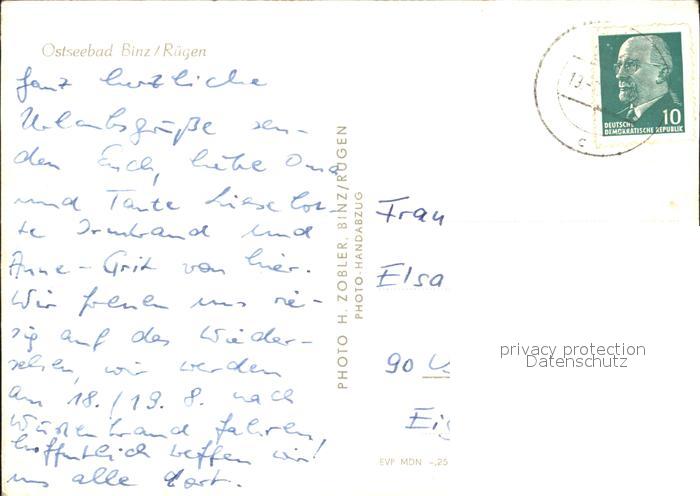 Ostseebad Binz/Rügen
ganz herzliche
Urlaubsgrüße sen-
den Euch, liebe Oma
und Tante Lieselot-
te Irmtraud und
Anne-Grit von hier.
Wir freuen uns rie-
sig auf das Wieder-
sehen, wir werden
am 18./19. 8. nach
Wüstenbrand fahren,
hoffentlich treffen wir
uns alle dort.
PHOTO H. ZOBLER, BINZ/RÜGEN
PHOTO-HANDABZUG
10
DEUTSCHE
DEMOKRATISCHE REPUBLIK
Frau
Elsa
90
EVP MDN -,25
privacy protection
Datenschutz